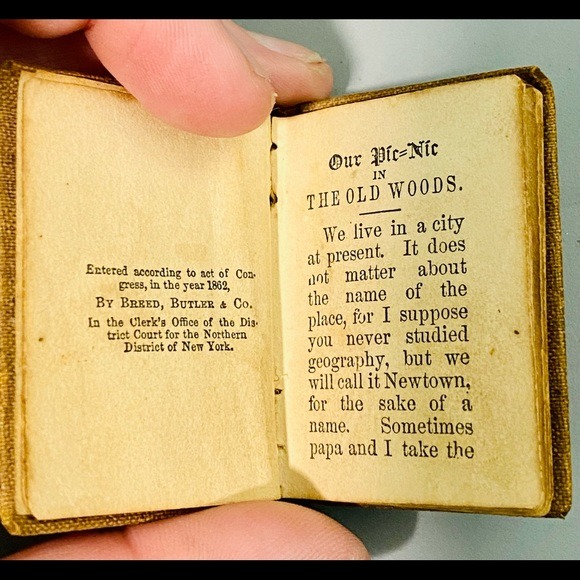 Entered according to act of Con-
gress, in the year 1862,
By Breed, Butler & Co.
In the Clerk's Office of the Dis-
trict Court for the Northern
District of New York.
Our Pic-Nic
IN
THE OLD WOODS.
We live in a city
at present. It does
not matter about
the name of the
place, for I suppose
you never studied
geography, but we
will call it Newtown,
for the sake of a
name. Sometimes
papa and I take the